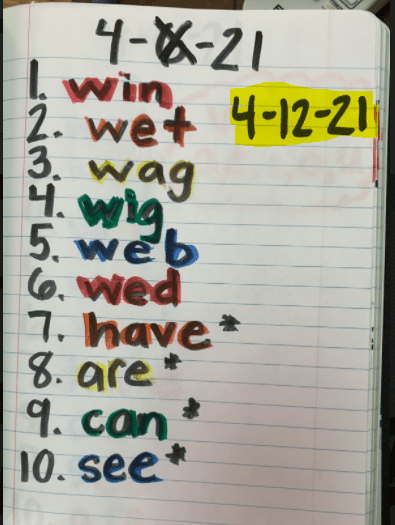 4-X-21
4-12-21
1. win
2. wet
3. wag
4. wig
5. web
6. wed
7. have *
8. are *
9. can *
10. see *